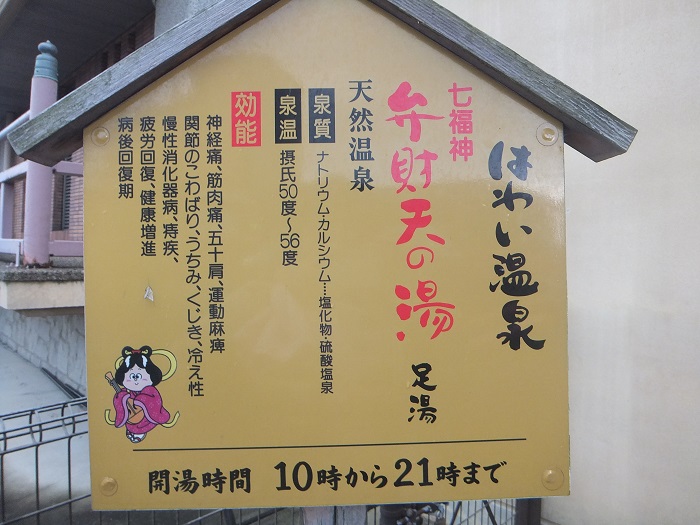 はわい温泉
七福神
弁財天の湯
足湯
天然温泉
泉質 ナトリウム・カルシウム…塩化物・硫酸塩泉
泉温 摂氏50度～56度
効能
神経痛、筋肉痛、五十肩、運動麻痺
関節のこわばり、うちみ、くじき、冷え性
慢性消化器病、痔疾、
疲労回復、健康増進
病後回復期
開湯時間 10時から21時まで